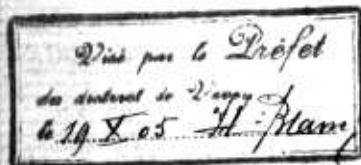 Visé par le Préfet
du district de Vevey
le 19 X 05 H. Blanc